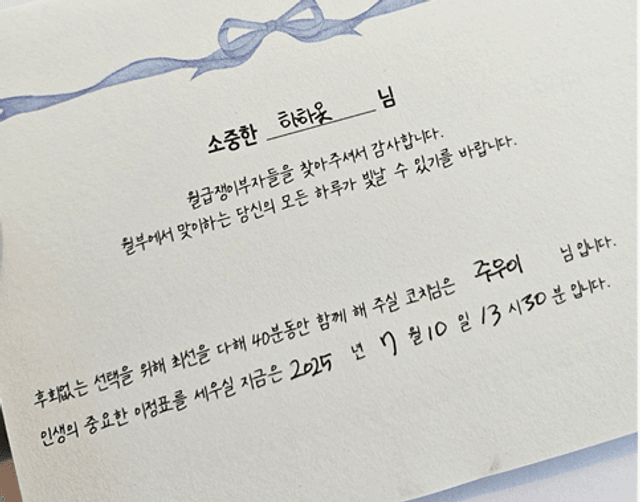 소중한 하하옷 님
월급쟁이부자들을 찾아주셔서 감사합니다.
월부에서 맞이하는 당신의 모든 하루가 빛날 수 있기를 바랍니다.
후회없는 선택을 위해 최선을 다해 40분동안 함께 해 주실 코치님은 주우이 님 입니다.
인생의 중요한 이정표를 세우실 지금은 2025 년 7 월 10 일 13 시 30 분 입니다.